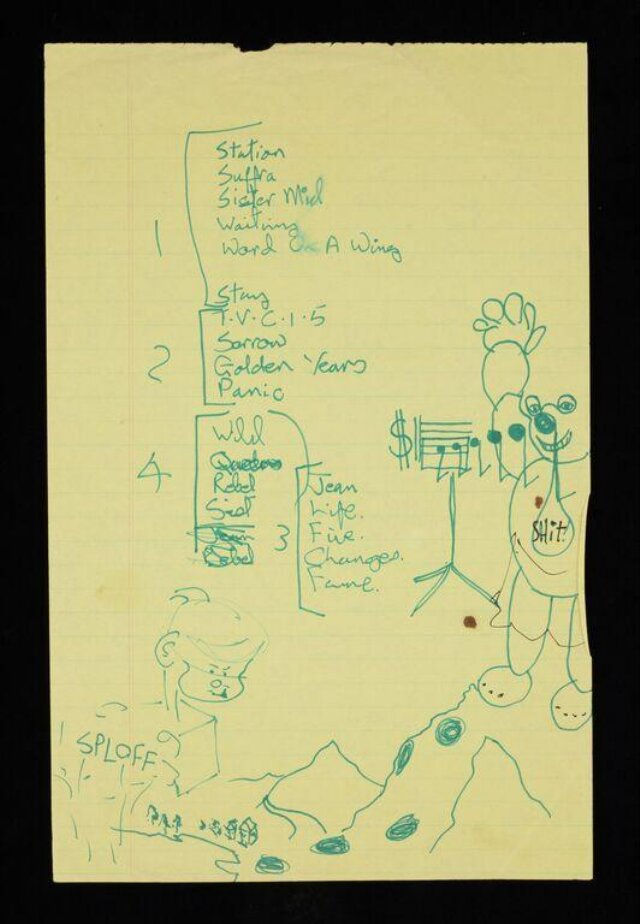 1
Station
Suffra
Sister Mid
Waiting
Word On A Wing
Stay
2
T.V.C.1.5
Sorrow
Golden Years
Panic
4
Wild
Queen
Rebel
3
Jean
Life.
Five.
Changes.
Fame.
$
SHit!
SPLOFF